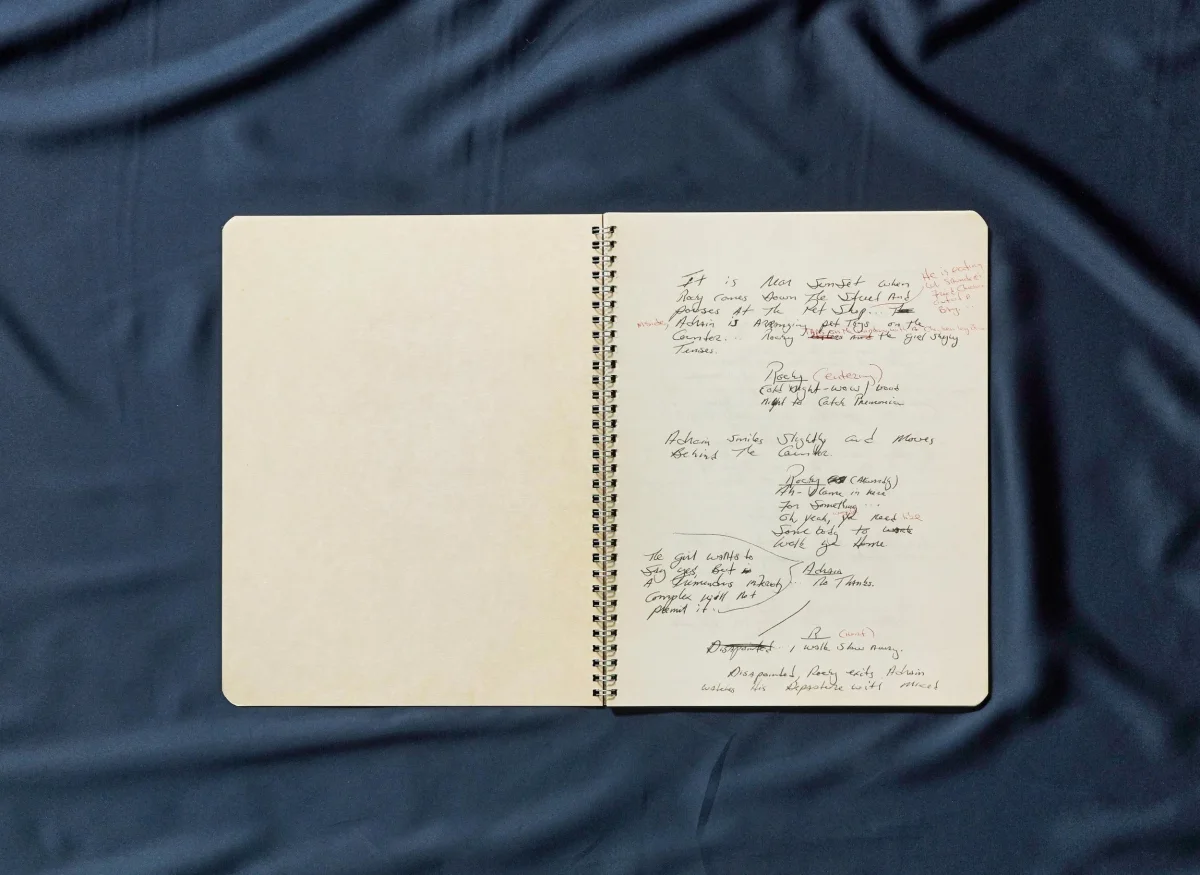 It is Near Sunset when
Rocky comes Down The Street And
pauses At The Pet Shop...
Adrain is Arranging pet Toys on the
Counter... Rocky the girl shyly
Tenses.
He is
Rocky (entering)
Cold Night - wow, Good
Night to Catch Pneumonia
Adrain smiles Slightly and Moves
Behind The Counter.
Rocky (Akwardly)
Ah - I came in here
For Something...
Oh yeah, ya need
Somebody to
walk ya Home.
The girl wants to
Say yes, But
A Tremendous
Complex will not
permit it.
Adrain
No Thanks.
R
I walk slow Away.
Disapointed
Disapointed, Rocky exits Adrain
watches his Departure with mixed